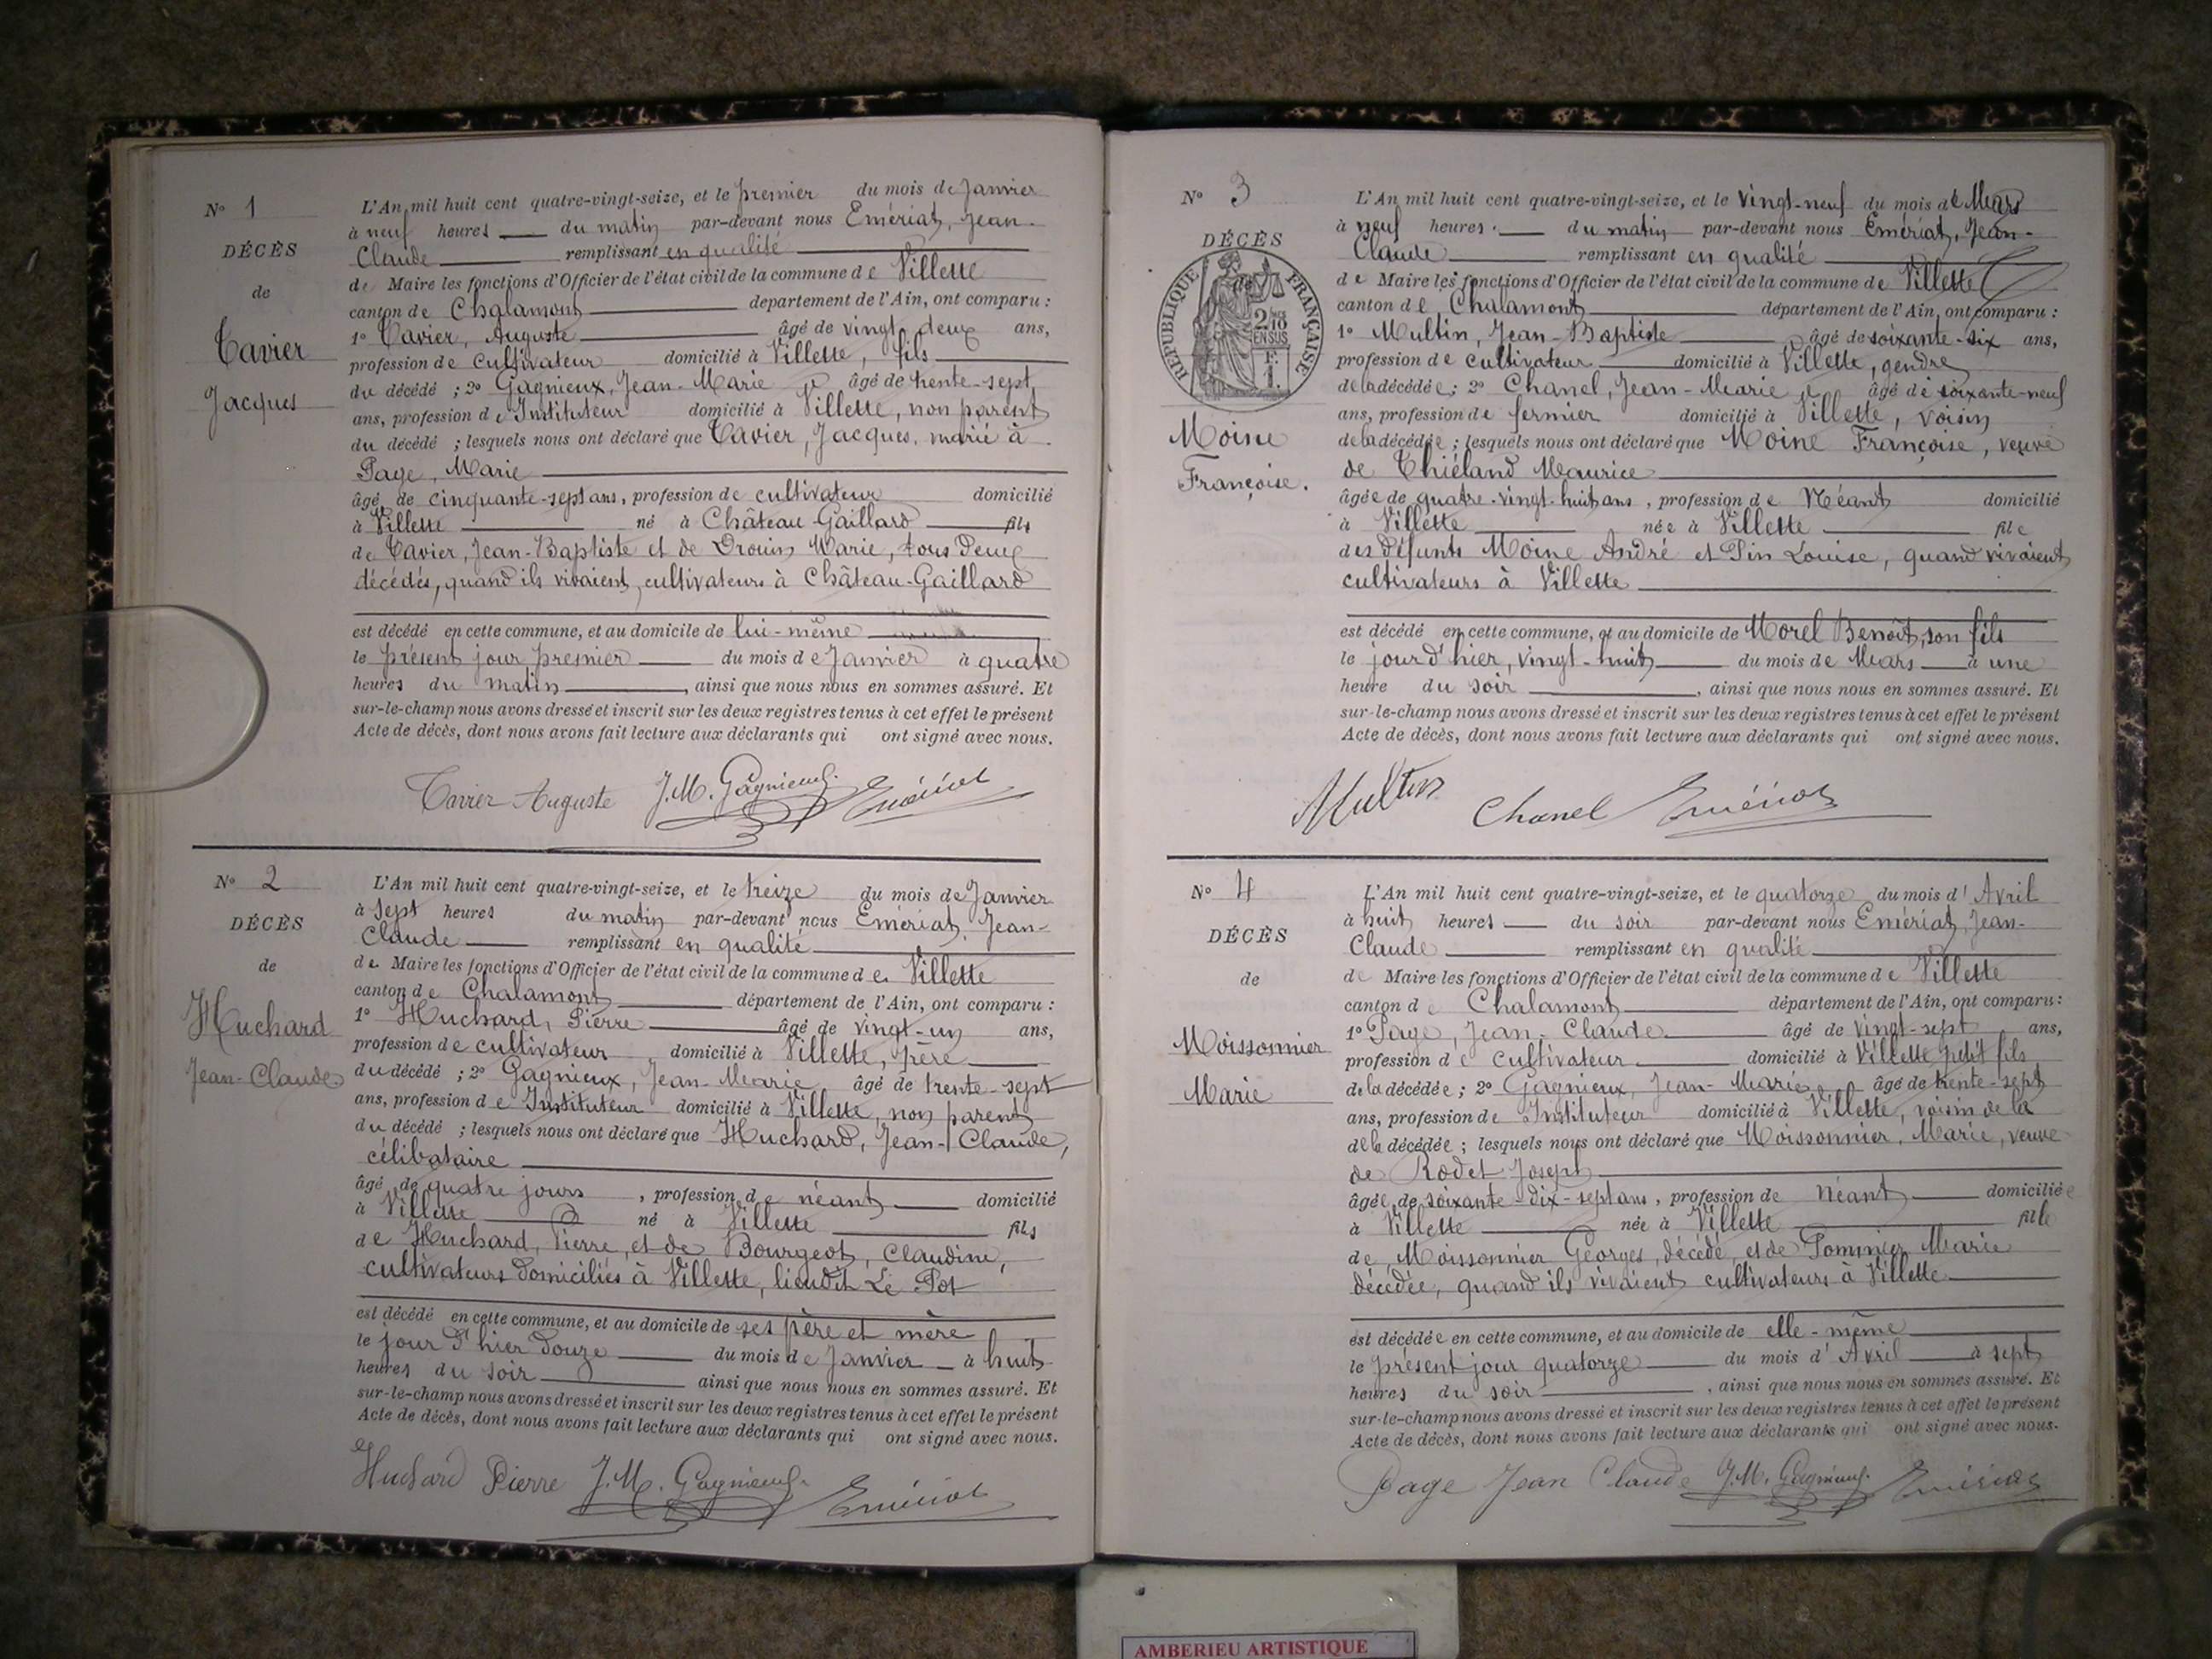 N° 1
DÉCÈS
de
Tavier
Jacques
L'An mil huit cent quatre-vingt-seize, et le premier du mois de Janvier
à neuf heures du matin par-devant nous Emériat, Jean-
Claude remplissant en qualité
de Maire les fonctions d'Officier de l'état civil de la commune de Villette
canton de Chalamont département de l'Ain, ont comparu :
1° Tavier, Auguste âgé de vingt deux ans,
profession de cultivateur domicilié à Villette, fils
du décédé ; 2° Gagnieux, Jean-Marie âgé de trente-sept
ans, profession de Instituteur domicilié à Villette, non parent
du décédé ; lesquels nous ont déclaré que Tavier, Jacques, marié à
Page, Marie
âgé de cinquante-sept ans, profession de cultivateur domicilié
à Villette né à Château-Gaillard fils
de Tavier, Jean-Baptiste et de Drouin Marie, tous deux
décédés, quand ils vivaient, cultivateurs à Château-Gaillard
est décédé en cette commune, et au domicile de lui-même
le présent jour premier du mois de Janvier à quatre
heures du matin, ainsi que nous nous en sommes assuré. Et
sur-le-champ nous avons dressé et inscrit sur les deux registres tenus à cet effet le présent
Acte de décès, dont nous avons fait lecture aux déclarants qui ont signé avec nous.
Tavier Auguste J.M. Gagnieux Emériat
N° 2
DÉCÈS
de
Huchard
Jean-Claude
L'An mil huit cent quatre-vingt-seize, et le treize du mois de Janvier
à sept heures du matin par-devant nous Emériat, Jean-
Claude remplissant en qualité
de Maire les fonctions d'Officier de l'état civil de la commune de Villette
canton de Chalamont département de l'Ain, ont comparu :
1° Huchard, Pierre âgé de vingt-un ans,
profession de cultivateur domicilié à Villette, père
du décédé ; 2° Gagnieux, Jean-Marie, âgé de trente-sept
ans, profession de Instituteur domicilié à Villette, non parent
du décédé ; lesquels nous ont déclaré que Huchard, Jean-Claude,
célibataire
âgé de quatre jours, profession de néant domicilié
à Villette né à Villette fils
de Huchard, Pierre, et de Bourgeot, Claudine,
cultivateurs domiciliés à Villette, lieudit Le Pot
est décédé en cette commune, et au domicile de ses père et mère
le jour d'hier douze du mois de Janvier à huit
heures du soir ainsi que nous nous en sommes assuré. Et
sur-le-champ nous avons dressé et inscrit sur les deux registres tenus à cet effet le présent
Acte de décès, dont nous avons fait lecture aux déclarants qui ont signé avec nous.
Huchard Pierre J.M. Gagnieux Emériat
N° 3
DÉCÈS
de
RÉPUBLIQUE FRANÇAISE
2/10 EN SUS
F. 1.
Moine
Françoise.
L'An mil huit cent quatre-vingt-seize, et le vingt-neuf du mois de Mars
à neuf heures du matin par-devant nous Emériat, Jean-
Claude remplissant en qualité
de Maire les fonctions d'Officier de l'état civil de la commune de Villette
canton de Chalamont département de l'Ain, ont comparu :
1° Multin, Jean-Baptiste, âgé de soixante-six ans,
profession de cultivateur domicilié à Villette, gendre
de la décédée ; 2° Chanel, Jean-Marie âgé de soixante-neuf
ans, profession de fermier domicilié à Villette, voisin
de la décédée ; lesquels nous ont déclaré que Moine Françoise, veuve
de Thiéland Maurice
âgée de quatre-vingt-huit ans, profession de Néant domicilié
à Villette née à Villette fille
des défunts Moine André et Pin Louise, quand vivaient
cultivateurs à Villette
est décédé en cette commune, et au domicile de Morel Benoît, son fils
le jour d'hier, vingt-huit du mois de Mars à une
heure du soir, ainsi que nous nous en sommes assuré. Et
sur-le-champ nous avons dressé et inscrit sur les deux registres tenus à cet effet le présent
Acte de décès, dont nous avons fait lecture aux déclarants qui ont signé avec nous.
Multin Chanel Emériat
N° 4
DÉCÈS
de
Moissonnier
Marie
L'An mil huit cent quatre-vingt-seize, et le quatorze du mois d'Avril
à huit heures du soir par-devant nous Emériat, Jean-
Claude remplissant en qualité
de Maire les fonctions d'Officier de l'état civil de la commune de Villette
canton de Chalamont département de l'Ain, ont comparu :
1° Page, Jean-Claude âgé de vingt-sept ans,
profession de cultivateur domicilié à Villette petit fils
de la décédée ; 2° Gagnieux, Jean-Marie, âgé de trente-sept
ans, profession de Instituteur domicilié à Villette, voisin de la
de la décédée ; lesquels nous ont déclaré que Moissonnier, Marie, veuve
de Rodet Joseph
âgée de soixante-dix-sept ans, profession de Néant domiciliée
à Villette née à Villette fille
de Moissonnier Georges, décédé, et de Pommier Marie
décédée, quand ils vivaient cultivateurs à Villette
est décédée en cette commune, et au domicile de elle-même
le présent jour quatorze du mois d'Avril à sept
heures du soir, ainsi que nous nous en sommes assuré. Et
sur-le-champ nous avons dressé et inscrit sur les deux registres tenus à cet effet le présent
Acte de décès, dont nous avons fait lecture aux déclarants qui ont signé avec nous.
Page Jean Claude J.M. Gagnieux Emériat
AMBERIEU ARTISTIQUE